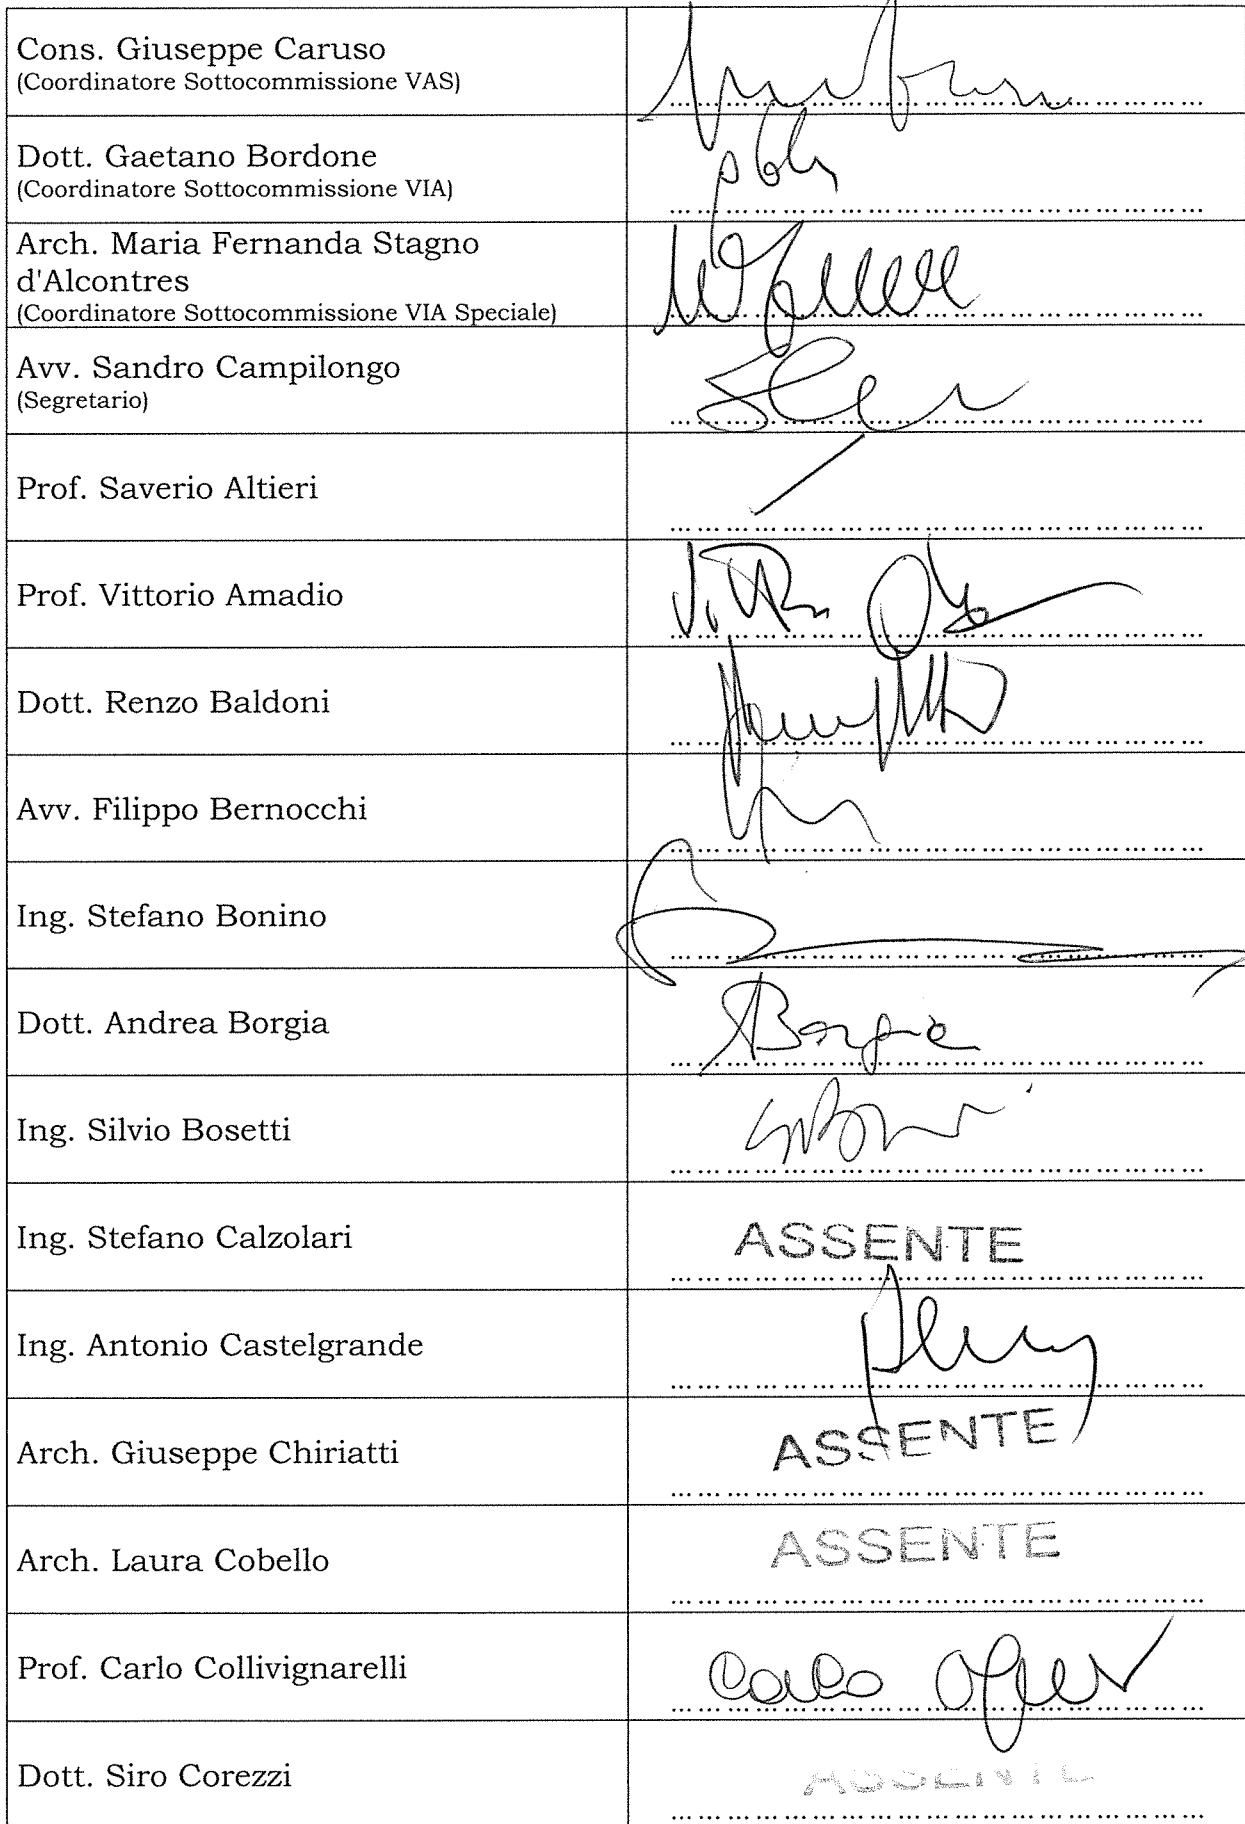 Cons. Giuseppe Caruso
(Coordinatore Sottocommissione VAS)
Dott. Gaetano Bordone
(Coordinatore Sottocommissione VIA)
Arch. Maria Fernanda Stagno
d'Alcontres
(Coordinatore Sottocommissione VIA Speciale)
Avv. Sandro Campilongo
(Segretario)
Prof. Saverio Altieri
Prof. Vittorio Amadio
Dott. Renzo Baldoni
Avv. Filippo Bernocchi
Ing. Stefano Bonino
Dott. Andrea Borgia
ABorgia
Ing. Silvio Bosetti
Ing. Stefano Calzolari
ASSENTE
Ing. Antonio Castelgrande
Arch. Giuseppe Chiriatti
ASSENTE
Arch. Laura Cobello
ASSENTE
Prof. Carlo Collivignarelli
Carlo
Dott. Siro Corezzi
ASSENTE